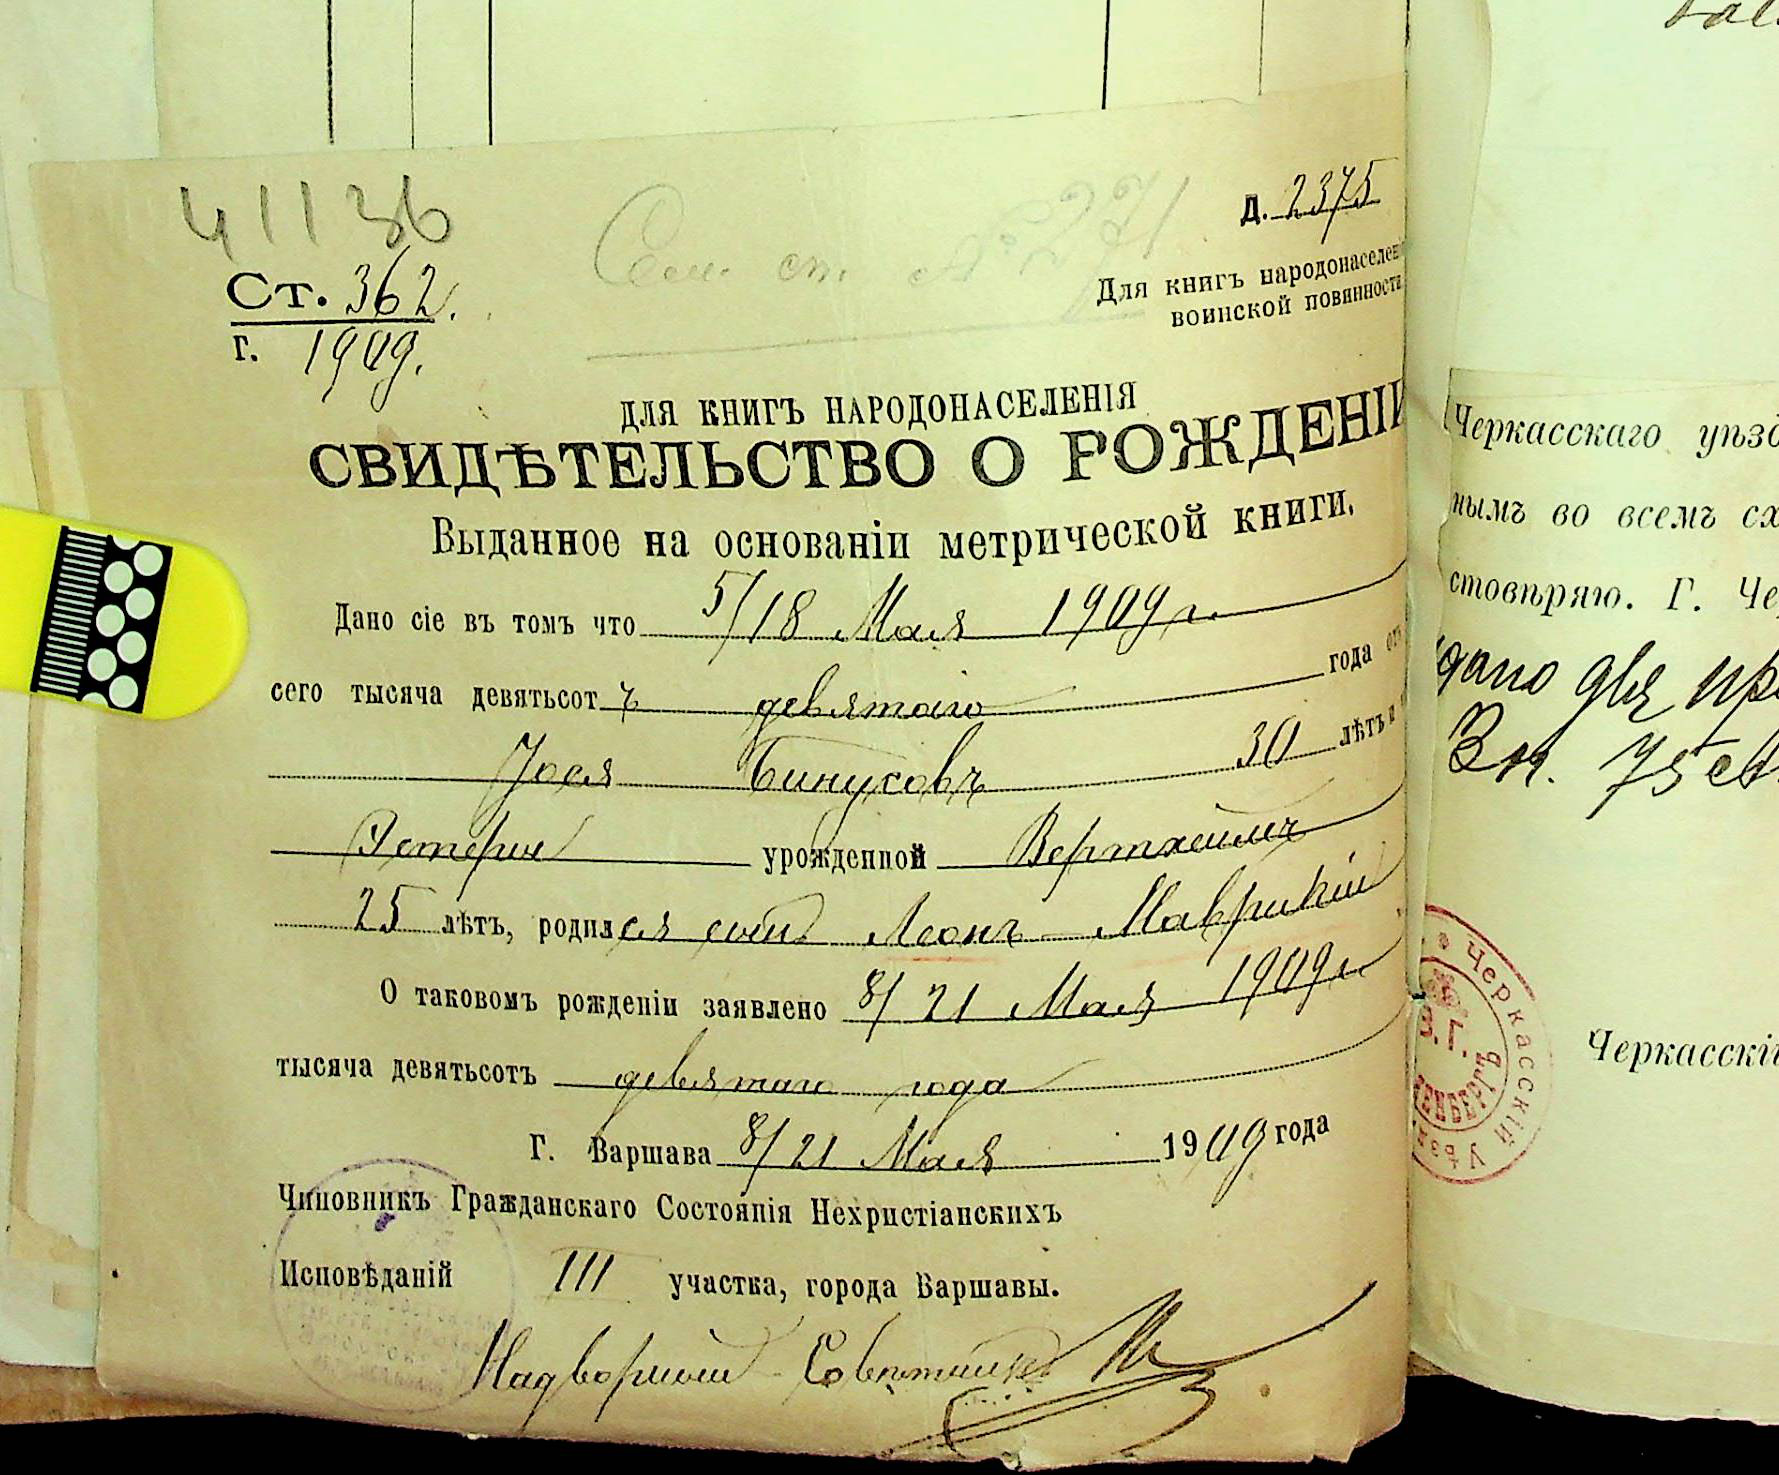 41136
Сем. ст. № 271
Д. 2375
Ст. 362.
г. 1909.
Для книгъ народонаселені
воинской повинности
ДЛЯ КНИГЪ НАРОДОНАСЕЛЕНІЯ
СВИДѢТЕЛЬСТВО О РОЖДЕНІИ
Выданное на основаніи метрической книги.
Дано сіе въ томъ что 5/18 Мая 1909 г.
сего тысяча девятьсотъ девятаго года от
Іося Бинусовъ 30 лѣтъ и
Эстеры урожденной Вертхеймъ
25 лѣтъ, родился сынъ Леонъ-Маврикій
О таковомъ рожденіи заявлено 8/21 Мая 1909 г.
тысяча девятьсотъ девятаго года
Г. Варшава 8/21 Мая 1909 года
Чиновникъ Гражданскаго Состоянія Нехристіанскихъ
Исповѣданій III участка, города Варшавы.
Надворный Совѣтникъ
Черкасскаго уѣзд
нымъ во всемъ сх
стовѣряю. Г. Че
дано для пр
Вз. 75 к
Черкасскій Уѣзд
Черкасскі